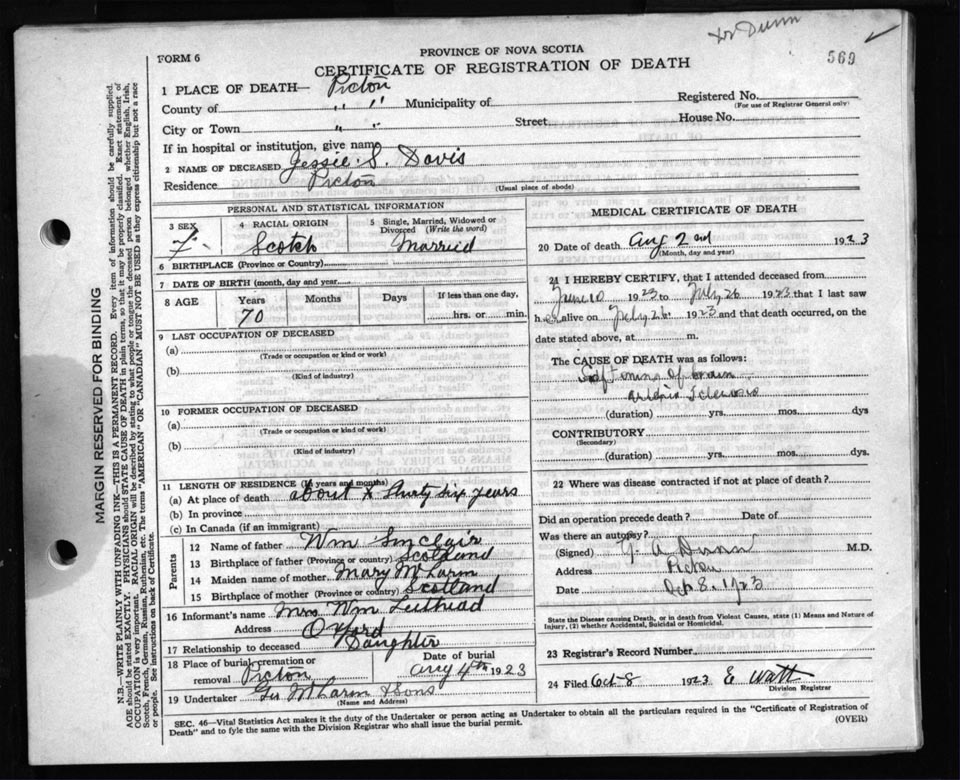 Dr Dunn
569
FORM 6
PROVINCE OF NOVA SCOTIA
CERTIFICATE OF REGISTRATION OF DEATH
1 PLACE OF DEATH— Pictou
County of " " Municipality of
Registered No.
(For use of Registrar General only)
City or Town " " Street House No.
If in hospital or institution, give name
2 NAME OF DECEASED Jessie S. Davis
Residence Pictou (Usual place of abode)
PERSONAL AND STATISTICAL INFORMATION
3 SEX F.
4 RACIAL ORIGIN Scotch
5 Single, Married, Widowed or Divorced (Write the word) Married
6 BIRTHPLACE (Province or Country)
7 DATE OF BIRTH (month, day and year)
8 AGE Years 70 Months Days If less than one day, hrs. or min.
9 LAST OCCUPATION OF DECEASED
(a)
(Trade or occupation or kind of work)
(b)
(Kind of industry)
10 FORMER OCCUPATION OF DECEASED
(a)
(Trade or occupation or kind of work)
(b)
(Kind of industry)
11 LENGTH OF RESIDENCE (In years and months)
(a) At place of death about thirty six years
(b) In province
(c) In Canada (if an immigrant)
Parents
12 Name of father Wm Sinclair
13 Birthplace of father (Province or country) Scotland
14 Maiden name of mother Mary McLarn
15 Birthplace of mother (Province or country) Scotland
16 Informant's name Mrs Wm
Address Oxford
17 Relationship to deceased Daughter
18 Place of burial, cremation or removal Pictou Date of burial Aug 4th 1923
19 Undertaker McLarn & Sons
(Name and Address)
MEDICAL CERTIFICATE OF DEATH
20 Date of death Aug 2nd 1923
(Month, day and year)
21 I HEREBY CERTIFY, that I attended deceased from
June 10 1923 to July 26 1923 that I last saw
her alive on July 26 1923 and that death occurred, on the
date stated above, at m.
The CAUSE OF DEATH was as follows:
Softening of brain
Arterio Sclerosis
(duration) yrs. mos. dys
CONTRIBUTORY
(Secondary)
(duration) yrs. mos. dys.
22 Where was disease contracted if not at place of death?
Did an operation precede death? Date of
Was there an autopsy?
(Signed) A Dunn M.D.
Address Pictou
Date Oct 8 1923
State the Disease causing Death, or in death from Violent Causes, state (1) Means and Nature of
Injury, (2) whether Accidental, Suicidal or Homicidal.
23 Registrar's Record Number
24 Filed Oct-8 1923 E Watt
Division Registrar
SEC. 46—Vital Statistics Act makes it the duty of the Undertaker or person acting as Undertaker to obtain all the particulars required in the "Certificate of Registration of
Death" and to fyle the same with the Division Registrar who shall issue the burial permit.
(OVER)
MARGIN RESERVED FOR BINDING
N.B.—WRITE PLAINLY WITH UNFADING INK—THIS IS A PERMANENT RECORD. Every item of information should be carefully supplied.
AGE should be stated EXACTLY. PHYSICIANS should STATE CAUSE OF DEATH in plain terms, so that it may be properly classified. Exact statement of
OCCUPATION is very important. RACIAL ORIGIN will be described by stating to what people or tongue the deceased person belonged, whether English, Irish,
Scotch, French, German, Russian, Ruthenian, etc. The terms "AMERICAN" OR "CANADIAN" MUST NOT BE USED as they express citizenship but not a race
or people. See instructions on back of Certificate.